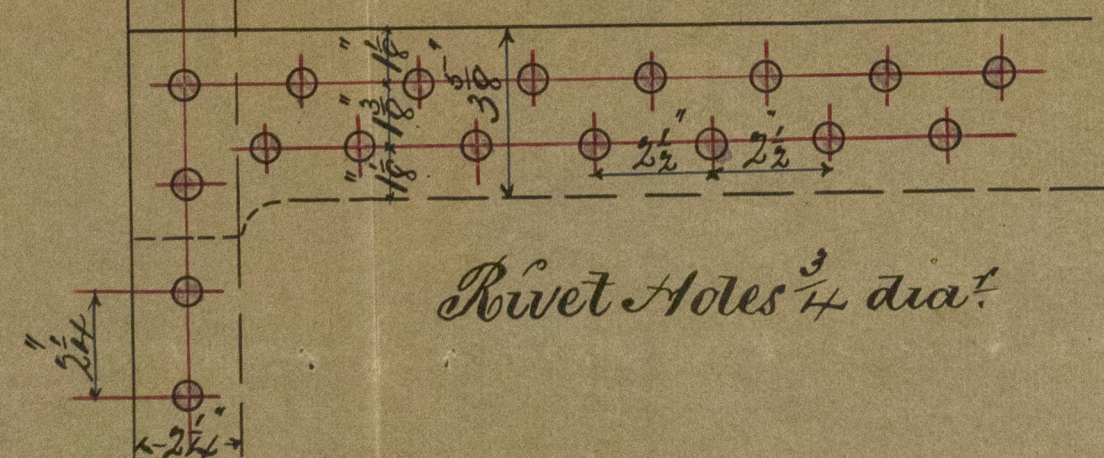 1 1/8"
1 3/8"
1 1/8"
3 5/8"
2 1/2"
2 1/2"
Rivet Holes 3/4 diar.
2 1/4"
2 1/4"